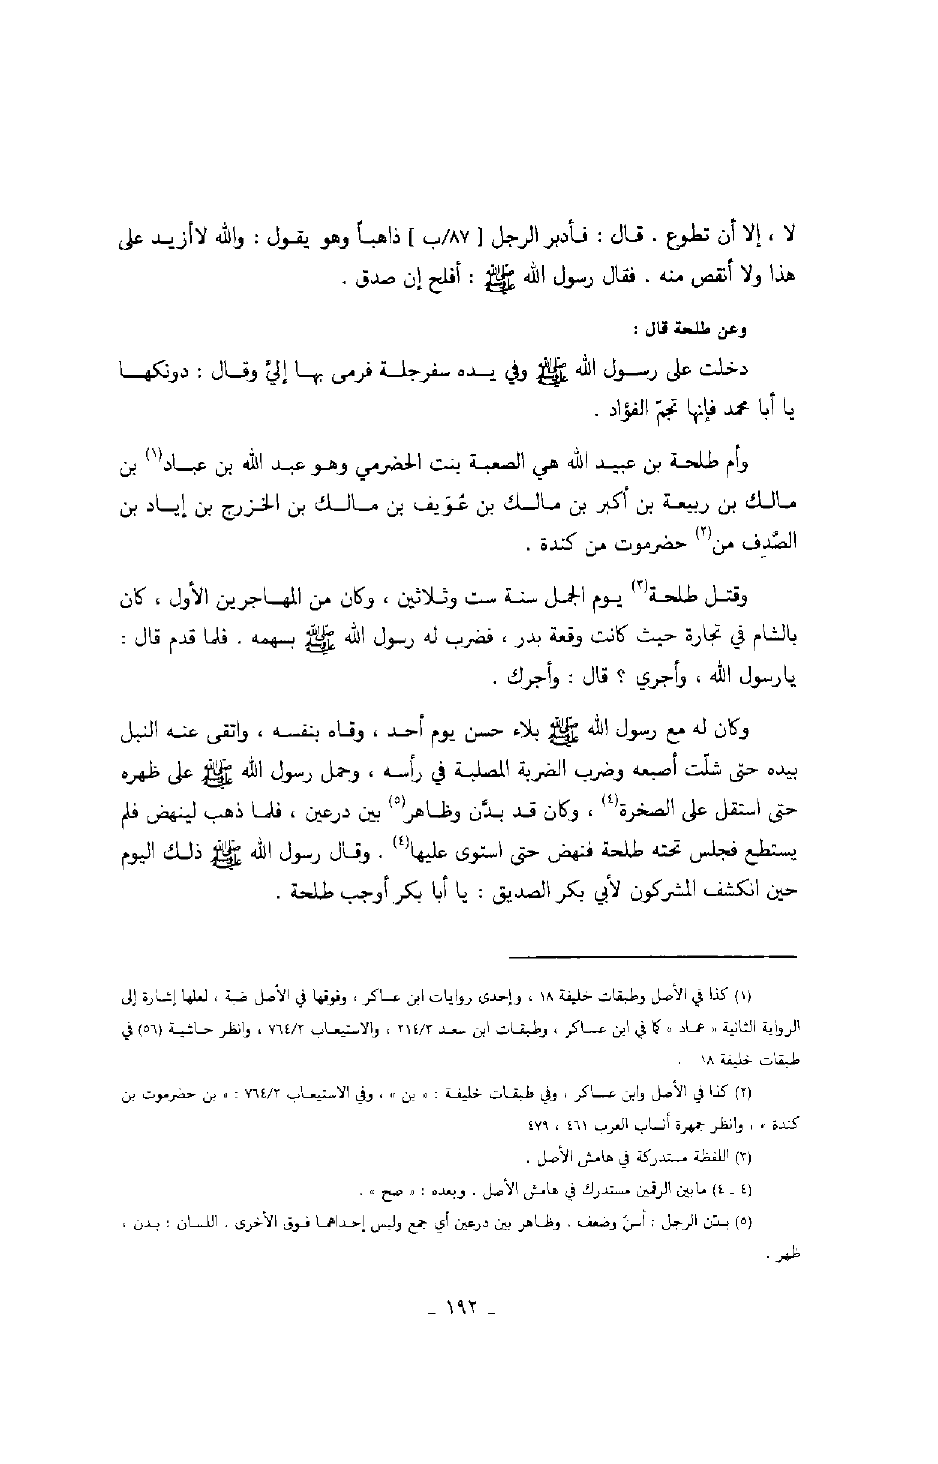 لا ، إلا أن تطوع . قال : فأدبر الرجل [ ٨٧/ب ] ذاهباً وهو يقول : والله لاأزيد على
هذا ولا أنقص منه . فقال رسول الله ﷺ : أفلح إن صدق .
وعن طلحة قال :
دخلت على رسول الله ﷺ وفي يده سفرجلة فرمى بها إليّ وقال : دونكها
يا أبا محمد فإنها تجمّ الفؤاد .
وأم طلحة بن عبيد الله هي الصعبة بنت الحضرمي وهو عبد الله بن عباد(١) بن
مالك بن ربيعة بن أكبر بن مالك بن عُوَيف بن مالك بن الخزرج بن إياد بن
الصَّدِف من(٢) حضرموت من كندة .
وقتل طلحة(٣) يوم الجمل سنة ست وثلاثين ، وكان من المهاجرين الأول ، كان
بالشام في تجارة حيث كانت وقعة بدر ، فضرب له رسول الله ﷺ بسهمه . فلما قدم قال :
يارسول الله ، وأجري ؟ قال : وأجرك .
وكان له مع رسول الله ﷺ بلاء حسن يوم أحد ، وقاه بنفسه ، واتقى عنه النبل
بيده حتى شلّت أصبعه وضرب الضربة المصلبة في رأسه ، وحمل رسول الله ﷺ على ظهره
حتى استقل على الصخرة(٤) ، وكان قد بدَّن وظاهر(٥) بين درعين ، فلما ذهب لينهض فلم
يستطع فجلس تحته طلحة فنهض حتى استوى عليها(٤) . وقال رسول الله ﷺ ذلك اليوم
حين انكشف المشركون لأبي بكر الصديق : يا أبا بكر أوجب طلحة .
(١) كذا في الأصل وطبقات خليفة ١٨ ، وإحدى روايات ابن عساكر ، وفوقها في الأصل ضبة ، لعلها إشارة إلى
الرواية الثانية « عماد » كما في ابن عساكر ، وطبقات ابن سعد ٢١٤/٣ ، والاستيعاب ٧٦٤/٢ ، وانظر حاشية (٥٦) في
طبقات خليفة ١٨ .
(٢) كذا في الأصل وابن عساكر ، وفي طبقات خليفة : « بن » ، وفي الاستيعاب ٧٦٤/٢ : « بن حضرموت بن
كندة » ، وانظر جمهرة أنساب العرب ٤٦١ ، ٤٧٩
(٣) اللفظة مستدركة في هامش الأصل .
(٤ ـ ٤) مابين الرقمين مستدرك في هامش الأصل . وبعده : « صح » .
(٥) بدّن الرجل : أسنّ وضعف . وظاهر بين درعين أي جمع ولبس إحداهما فوق الأخرى . اللسان : بدن ،
ظهر .
ـ ١٩٢ ـ